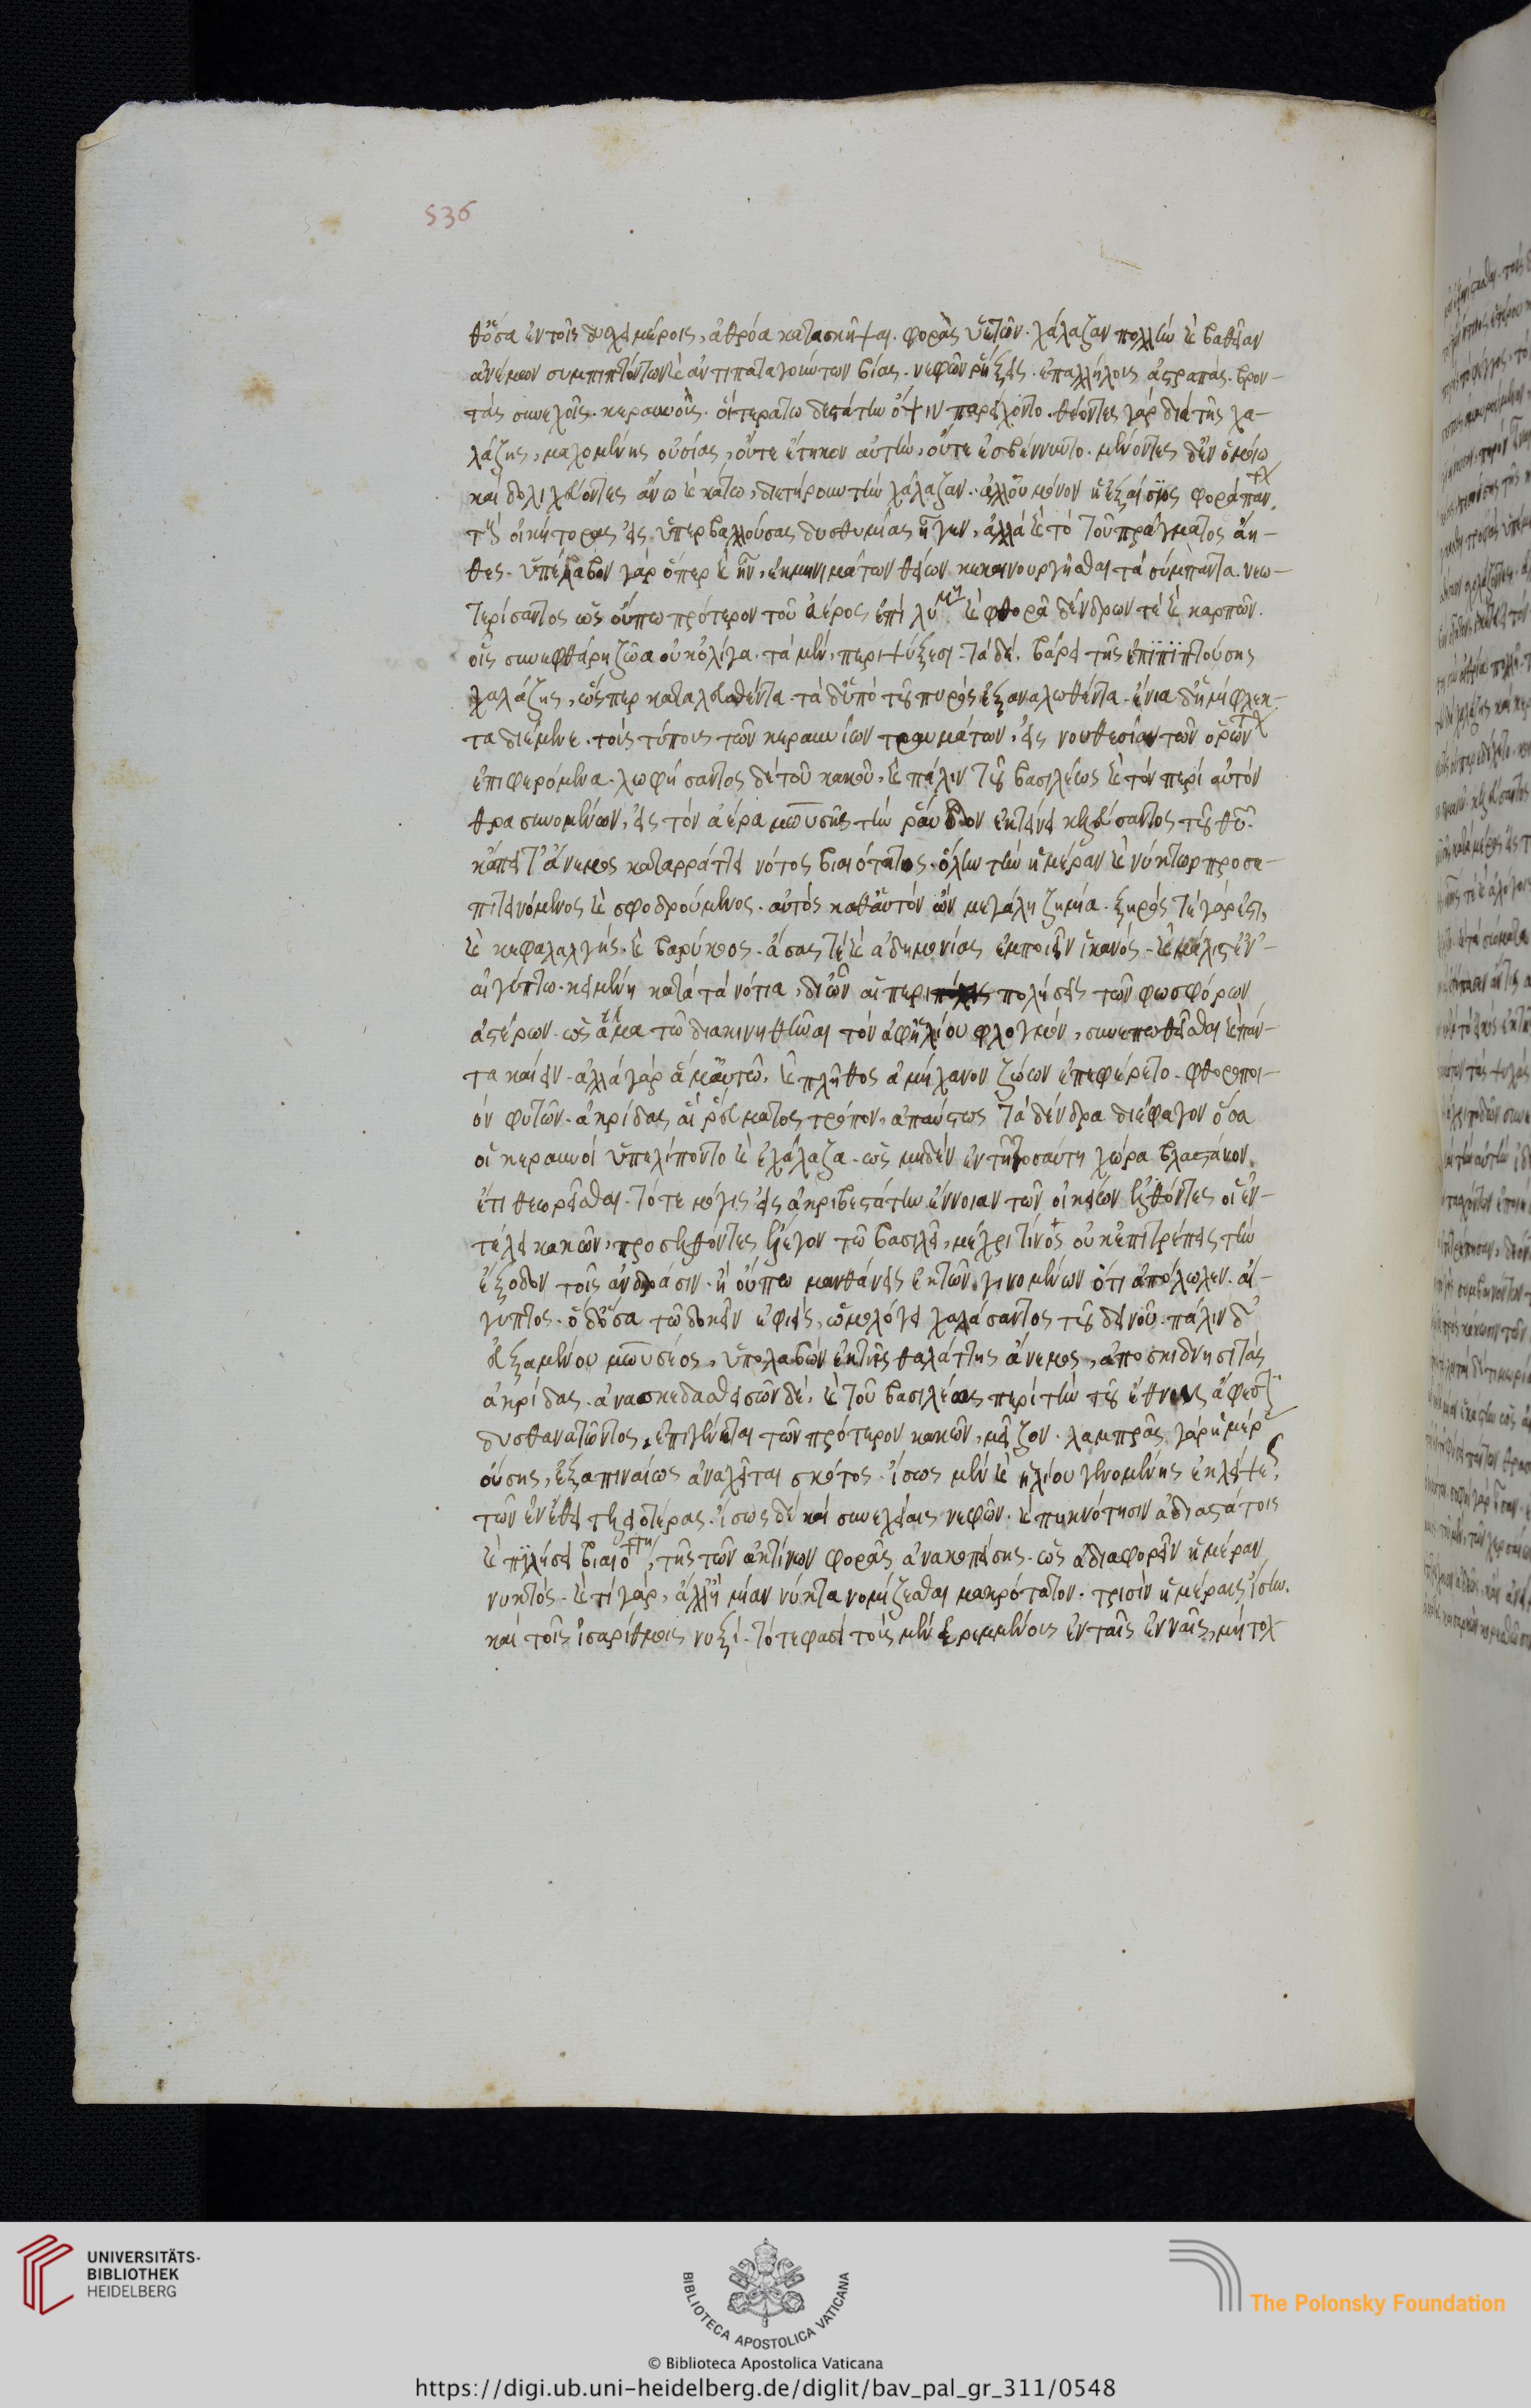 536
θοῦσα ἐν τοῖς δυχειμέροις, ἀθρόα κατασκῆψαι. φορὰς ὑετῶν. χάλαζαν πολλὴν καὶ βαθεῖαν
ἀνέμων συμπιπτόντων καὶ ἀντιπαταγούντων βίας. νεφῶν ῥήξεις. ἐπαλλήλους ἀστραπὰς. βρον-
τὰς συνεχεῖς. κεραυνοὺς. οἳ τερατωδεστάτην ὄψιν παρείχοντο. θέοντες γὰρ διὰ τῆς χα-
λάζης, μαχομένης οὐσίας, οὔτε ἔτηκον αὐτὴν, οὔτε ἐσβέννυντο. μένοντες δ' ἐν ὁμοίω
καὶ δολιχεύοντες ἄνω καὶ κάτω, διετήρουν τὴν χάλαζαν. ἀλλ' οὐ μόνον ἡ ἐξαίσιος φορὰ παν
τοὺς οἰκήτορας εἰς ὑπερβαλλούσας δυσθυμίας ἦγεν, ἀλλὰ καὶ τὸ τοῦ πράγματος ἄη-
θες. ὑπέλαβον γὰρ ὅπερ καὶ ἦν, ἐκ μηνιμάτων θείων κεκαινουργῆσθαι τὰ σύμπαντα. νεω-
τερίσαντος ὡς οὔπω πρότερον τοῦ ἀέρος ἐπὶ λύμη καὶ φθορᾶ δένδρων τὲ καὶ καρπῶν.
οἷς συνεφθάρη ζῶα οὐκ ὀλίγα. τὰ μὲν, περιψύξεσι. τὰ δὲ. βάρει τῆς ἐπιπιπτούσης
χαλάζης, ὥσπερ καταλευσθέντα. τὰ δ' ὑπὸ τοῦ πυρὸς ἐξαναλωθέντα. ἔνια δ' ἡμίφλεκ-
τα διέμενε. τοὺς τύπους τῶν κεραυνίων τραυμάτων, εἰς νουθεσίαν τῶν ὁρώντων
ἐπιφερόμενα. λωφήσαντος δὲ τοῦ κακοῦ, καὶ πάλιν τοῦ βασιλέως καὶ τῶν περὶ αὐτὸν
θρασυνομένων, εἰς τὸν ἀέρα μωυσῆς τὴν ῥάβδον ἐκτείνει κελεύσαντος τοῦ θεοῦ.
κἄπειτ' ἄνεμος καταρράττει νότος βιαιότατος. ὅλην τὴν ἡμέραν καὶ νύκτωρ προσε-
πιτεινόμενος καὶ σφοδρούμενος. αὐτὸς καθ' αὑτὸν ὢν μεγάλη ζημία. ξηρός τέ γάρ ἐστι
καὶ κεφαλαλγὴς. καὶ βαρύκοος. ἄσας τὲ καὶ ἀδημονίας ἐμποιεῖν ἱκανός. καὶ μάλιστ' ἐν
αἰγύπτω. κειμένη κατὰ τὰ νότια, δι' ὧν αἱ περιπολήσεις τῶν φωσφόρων
ἀστέρων. ὡς ἅμα τῶ διακινηθῆναι τὸν ἀφ' ἡλίου φλογμὸν, συνεπωθεῖσθαι καὶ πάν-
τα καίειν. ἀλλὰ γὰρ ἅμ' αὐτῶ, καὶ πλῆθος ἀμήχανον ζώων ἐπεφέρετο. φθοροποι-
ὸν φυτῶν. ἀκρίδας αἳ ῥεύματος τρόπον, ἀπαύστως τὰ δένδρα διέφαγον ὅσα
οἱ κεραυνοὶ ὑπελίποντο καὶ ἐχάλαζα. ὡς μηδὲν ἐν τῆ τοσαύτη χώρα βλαστάνον
ἔτι θεωρεῖσθαι. τότε μόγις εἰς ἀκριβεστάτην ἔννοιαν τῶν οἰκείων ἐλθόντες οἱ ἐν
τέλει κακῶν, προσελθόντες ἔλεγον τῶ βασιλεῖ, μέχρι τίνος οὐκ ἐπιτρέπεις τὴν
ἔξοδον τοῖς ἀνδράσιν. ἢ οὔπω μανθάνεις ἐκ τῶν γινομένων ὅτι ἀπόλωλεν. αἴ-
γυπτος. ὁ δ' ὅσα τῶ δοκεῖν ἐφιεὶς, ὡμολόγει χαλάσαντος τοῦ δεινοῦ. πάλιν δ'
εὐξαμένου μωυσέος, ὑπολαβὼν ἐκ τῆς θαλάττης ἄνεμος, ἀποσκίδνησι τὰς
ἀκρίδας. ἀνασκεδασθεισῶν δὲ, καὶ τοῦ βασιλέως περὶ τὴν τοῦ ἔθνους ἄφεσιν
δυσθανατῶντος, ἐπιγίνεται τῶν πρότερον κακῶν, μεῖζον. λαμπρᾶς γὰρ ἡμέρας
οὔσης, ἐξαπιναίως ἀναχεῖται σκότος. ἴσως μὲν καὶ ἡλίου γενομένης ἐκλείψεως
τῶν ἐν ἔθει τελειοτέρας. ἴσως δὲ καὶ συνεχείαις νεφῶν. καὶ πυκνότησιν ἀδιαστάτοις
καὶ πιλήσει βιαιοτάτη, τῆς τῶν ἀκτίνων φορᾶς ἀνακοπείσης. ὡς ἀδιαφορεῖν ἡμέραν
νυκτός. καὶ τί γὰρ, ἀλλ' ἢ μίαν νύκτα νομίζεσθαι μακρότατον. τρισὶν ἡμέραις ἴσην.
καὶ τοῖς ἰσαρίθμοις νυξί. τότε φασὶ τοὺς μὲν ἐρριμμένους ἐν ταῖς εὐναῖς, μὴ τολ
UNIVERSITÄTS-
BIBLIOTHEK
HEIDELBERG
BIBLIOTECA APOSTOLICA VATICANA
The Polonsky Foundation
© Biblioteca Apostolica Vaticana
https://digi.ub.uni-heidelberg.de/diglit/bav_pal_gr_311/0548